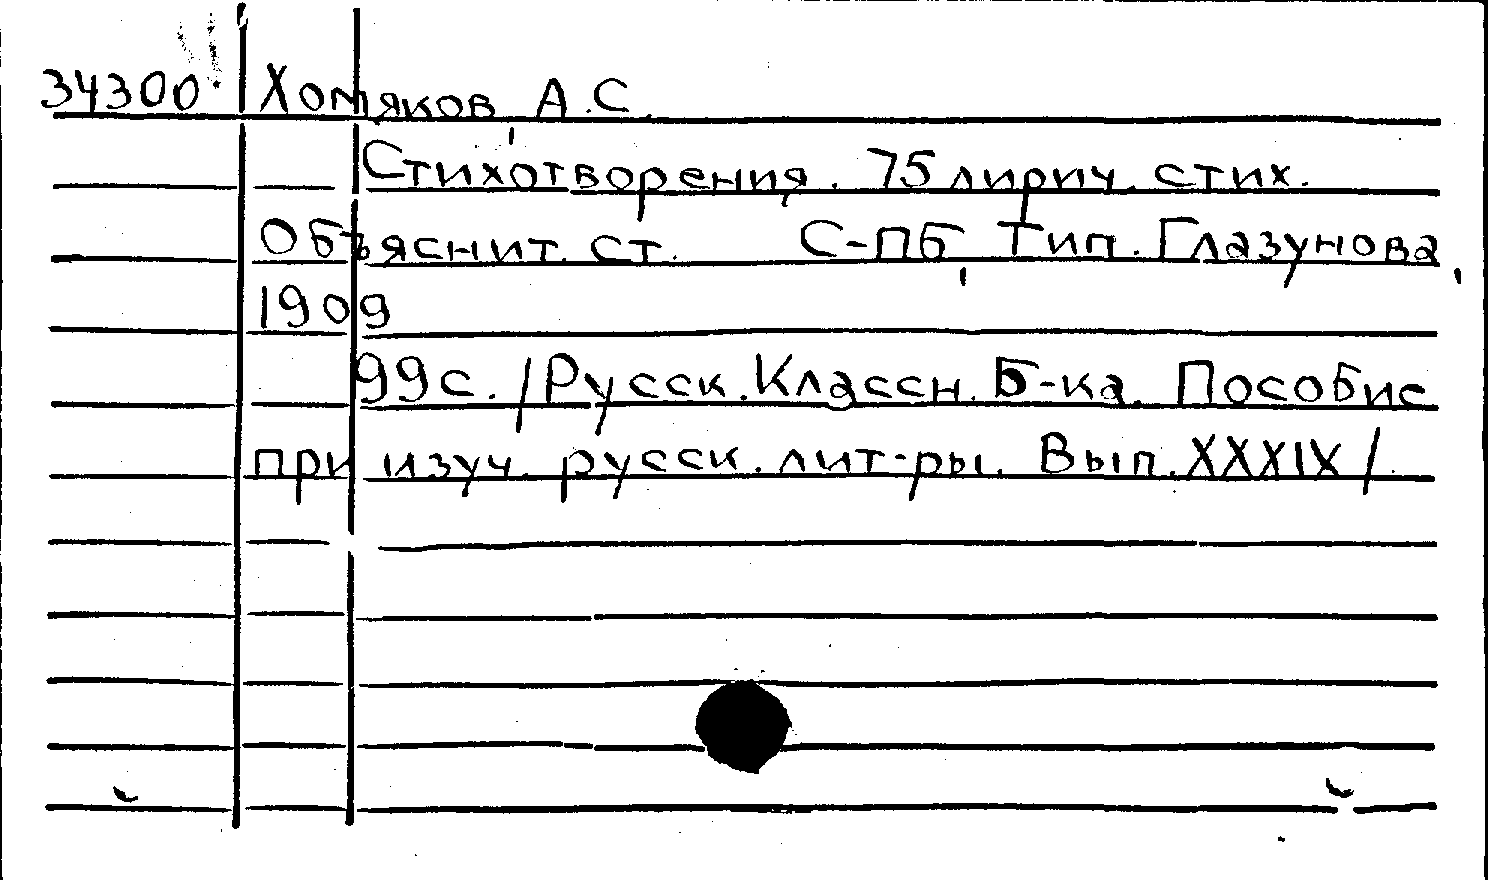 34300 Хомяков, А.С.
Стихотворения. 75 лирич. стих.
Объяснит. ст. С-ПБ, Тип. Глазунова,
1909
99с. /Русск. Классн. Б-ка. Пособие
при изуч. русск. лит-ры. Вып. XXXIX/.